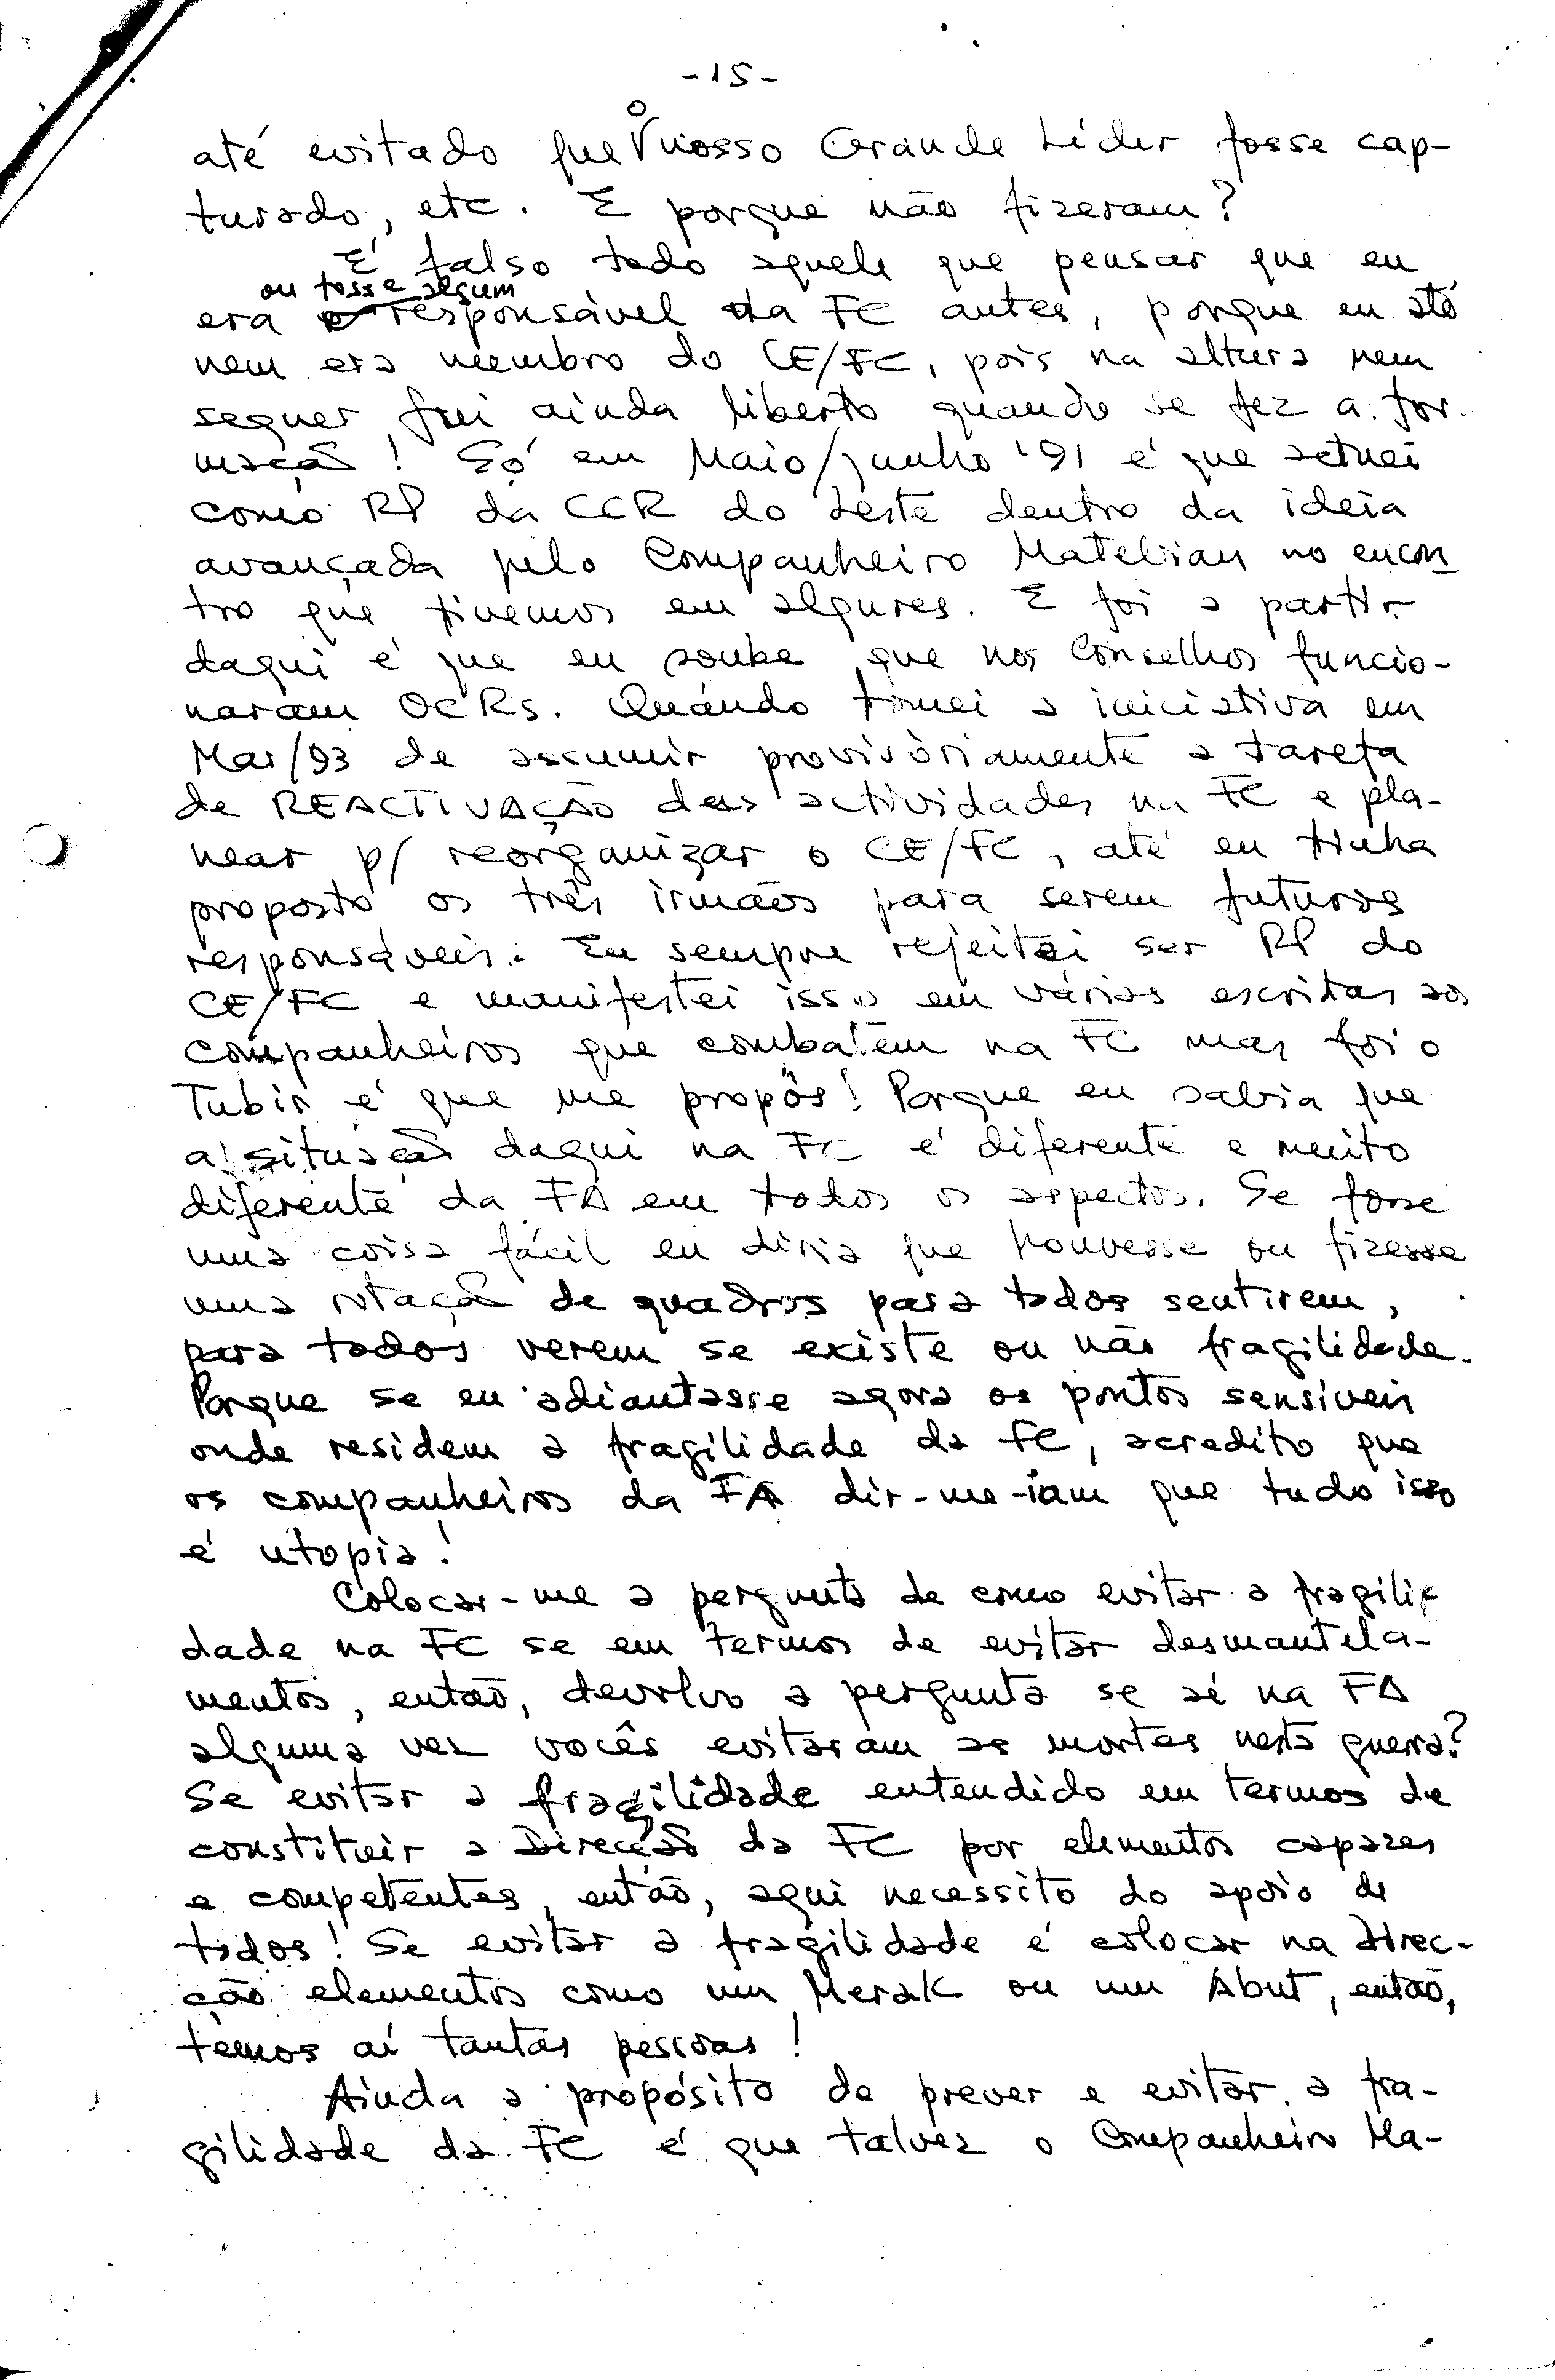 -15-
até evitado que o nosso Grande Líder fosse cap-
turado, etc. E porque não fizeram?
É falso todo aquele que pensar que eu
ou fosse algum
era responsável da FC antes, porque eu até
nem era membro do CE/FC, pois na altura nem
sequer fui ainda liberto quando se fez a for-
mação! Só em Maio/Junho '91 é que actuei
como RP da CCR do Leste dentro da ideia
avançada pelo Companheiro Matebian no encon
tro que tivemos em algures. E foi a partir
daqui é que eu soube que nos Conselhos funcio-
naram OCRs. Quando tomei a iniciativa em
Mar/93 de assumir provisòriamente a tarefa
de REACTIVAÇÃO das actividades na FC e pla-
near p/ reorganizar o CE/FC, até eu tinha
proposto os três irmãos para serem futuros
responsáveis. Eu sempre rejeitei ser RP do
CE/FC e manifestei isso em várias escritas aos
companheiros que combatem na FC mas foi o
Tubir é que me propôs! Porque eu sabia que
a situação daqui na FC é diferente e muito
diferente da FA em todos os aspectos. Se fosse
uma coisa fácil eu diria que houvesse ou fizesse
uma rotação de quadros para todos sentirem,
para todos verem se existe ou não fragilidade.
Porque se eu adiantasse agora os pontos sensíveis
onde residem a fragilidade da FC, acredito que
os companheiros da FA dir-me-iam que tudo isso
é utopia!
Colocar-me a pergunta de como evitar a fragili-
dade na FC se em termos de evitar desmantela-
mentos, então, devolvo a pergunta se aí na FA
alguma vez vocês evitaram as mortes nesta guerra?
Se evitar a fragilidade entendido em termos de
constituir a Direcção da FC por elementos capazes
e competentes, então, aqui necessito do apoio de
todos! Se evitar a fragilidade é colocar na Direc-
ção elementos como um Merak ou um Abut, então,
temos aí tantas pessoas!
Ainda a propósito de prever e evitar a fra-
gilidade da FC é que talvez o Companheiro Ma-